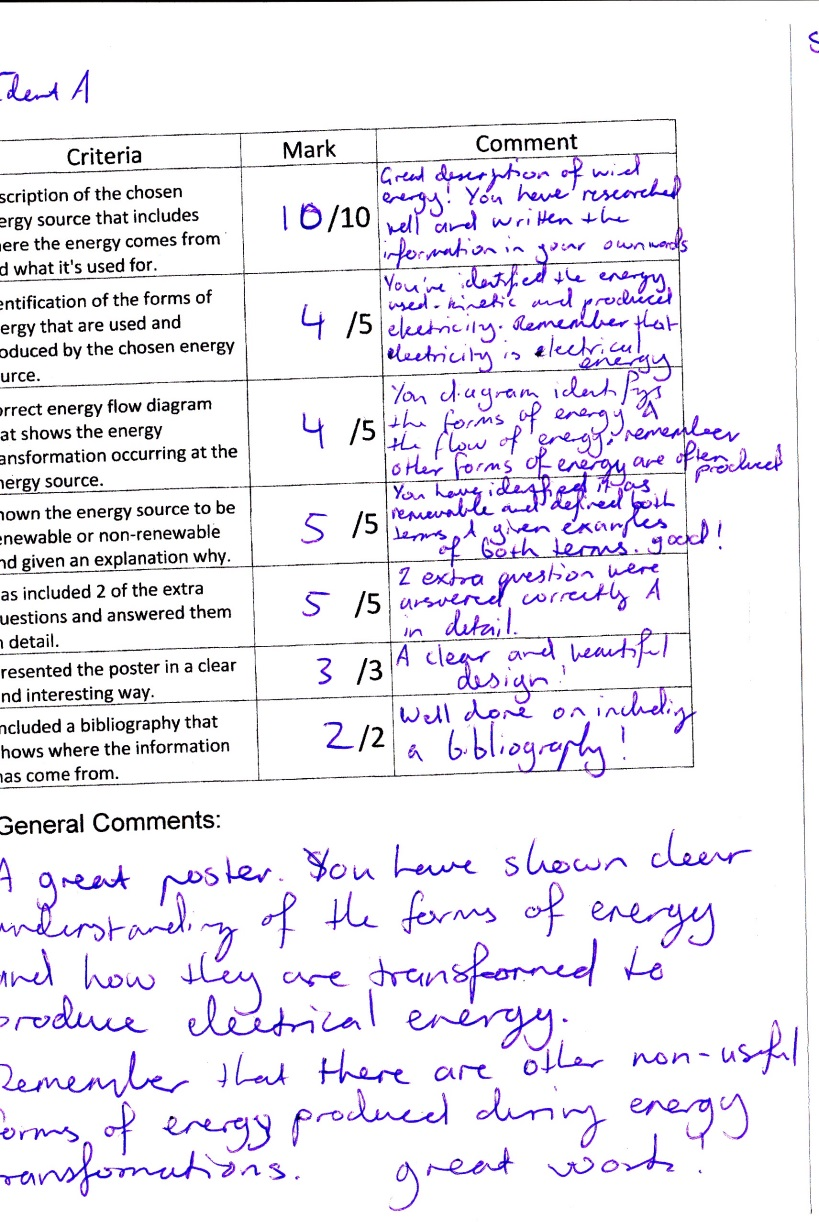 S
dent A
Criteria
Mark
Comment
scription of the chosen
ergy source that includes
here the energy comes from
d what it's used for.
10/10
Great description of wind
energy! You have researched
well and written the
information in your own words
entification of the forms of
ergy that are used and
oduced by the chosen energy
urce.
4 /5
You've identified the energy
used - kinetic and produced
electricity. Remember that
electricity is electrical
energy
orrect energy flow diagram
at shows the energy
ansformation occurring at the
nergy source.
4 /5
You diagram identifys
the forms of energy &
the flow of energy, remember
other forms of energy are often
produced
hown the energy source to be
enewable or non-renewable
nd given an explanation why.
5 /5
You have identified it as
renewable and defined both
terms & given examples
of both terms. good!
as included 2 of the extra
uestions and answered them
n detail.
5 /5
2 extra question were
answered correctly &
in detail.
resented the poster in a clear
nd interesting way.
3 /3
A clear and beautiful
design!
ncluded a bibliography that
hows where the information
as come from.
2/2
Well done on including
a bibliography!
General Comments:
A great poster. You have shown clear
understanding of the forms of energy
and how they are transformed to
produce electrical energy.
Remember that there are other non-useful
forms of energy produced during energy
ransformations. great work!